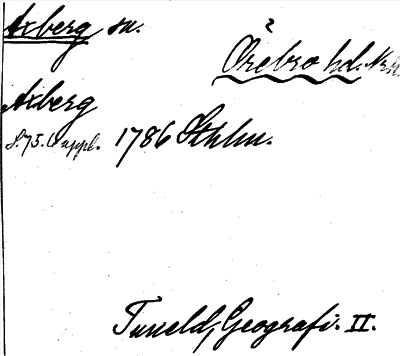 Axberg sn.
Örebro hd. Nrk.
Axberg
S. 75. 6 uppl. 1786 Sthlm.
Tuneld, Geografi. II.